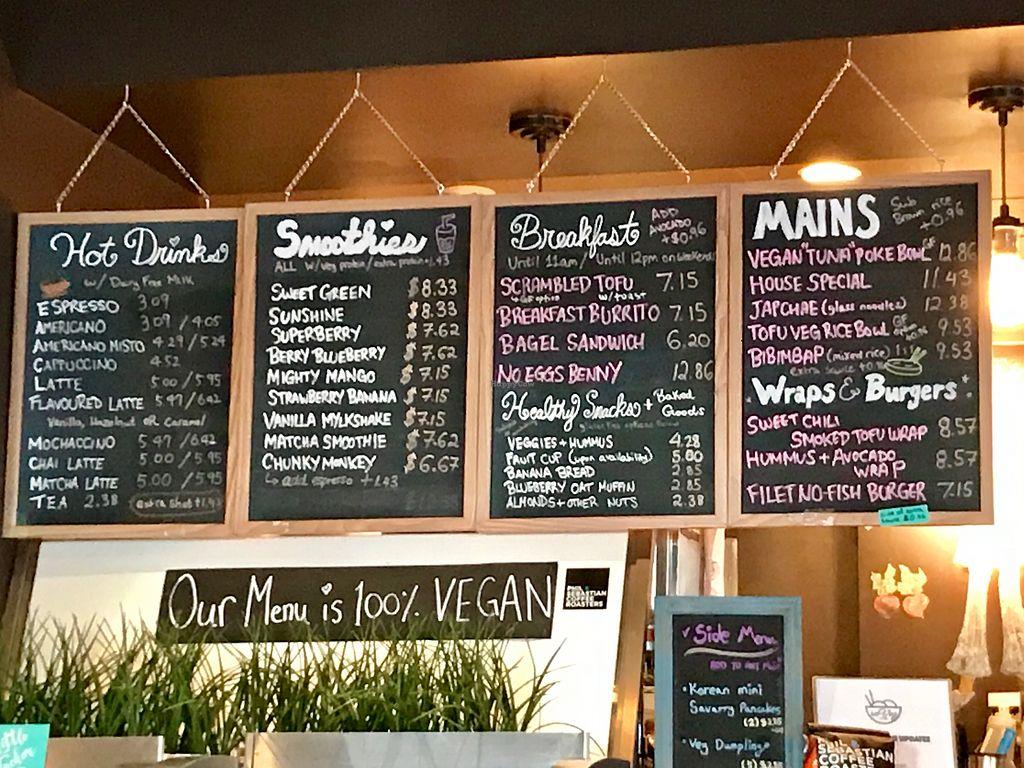 Hot Drinks
w/ Dairy Free Milk
ESPRESSO 3.09
AMERICANO 3.09 / 4.05
AMERICANO MISTO 4.29 / 5.24
CAPPUCCINO 4.52
LATTE 5.00 / 5.95
FLAVOURED LATTE 5.47 / 6.42
Vanilla, Hazelnut OR Caramel
MOCHACCINO 5.47 / 6.42
CHAI LATTE 5.00 / 5.95
MATCHA LATTE 5.00 / 5.95
TEA 2.38 extra shot +1.43
Smoothies
ALL w/ veg protein / extra protein +1.43
SWEET GREEN $8.33
SUNSHINE $8.33
SUPERBERRY $7.62
BERRY BLUEBERRY $7.62
MIGHTY MANGO $7.15
STRAWBERRY BANANA $7.15
VANILLA MYLKSHAKE $7.15
MATCHA SMOOTHIE $7.62
CHUNKY MONKEY $6.67
↳ add espresso +1.43
Breakfast ADD AVOCADO +$0.96
Until 11am / Until 12pm on weekends
SCRAMBLED TOFU 7.15
↳ GF option w/ toast
BREAKFAST BURRITO 7.15
BAGEL SANDWICH 6.20
NO EGGS BENNY 12.86
Healthy Snacks + Baked Goods
VEGGIES + HUMMUS 4.28
FRUIT CUP (upon availability) 5.00
BANANA BREAD 2.85
BLUEBERRY OAT MUFFIN 2.85
ALMONDS + OTHER NUTS 2.38
MAINS Sub Brown rice +0.96
VEGAN "TUNA" POKE BOWL GF 12.86
HOUSE SPECIAL 11.43
JAPCHAE (glass noodles) 12.38
TOFU VEG RICE BOWL GF 9.53
BIBIMBAP (mixed rice) 9.53
extra sauce
Wraps & Burgers
SWEET CHILI
SMOKED TOFU WRAP 8.57
HUMMUS + AVOCADO
WRAP 8.57
FILET NO-FISH BURGER 7.15
Our Menu is 100% VEGAN
PHIL & SEBASTIAN
COFFEE
ROASTERS
Side Menu
• Korean mini
Savarry Pancakes
(2)
• Veg Dumpling
SEBASTIAN
COFFEE